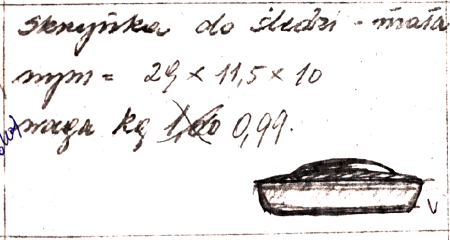 Skrzynka do śledzi - mała
wym = 29 x 11,5 x 10
waga kg 1,00 0,99.
V